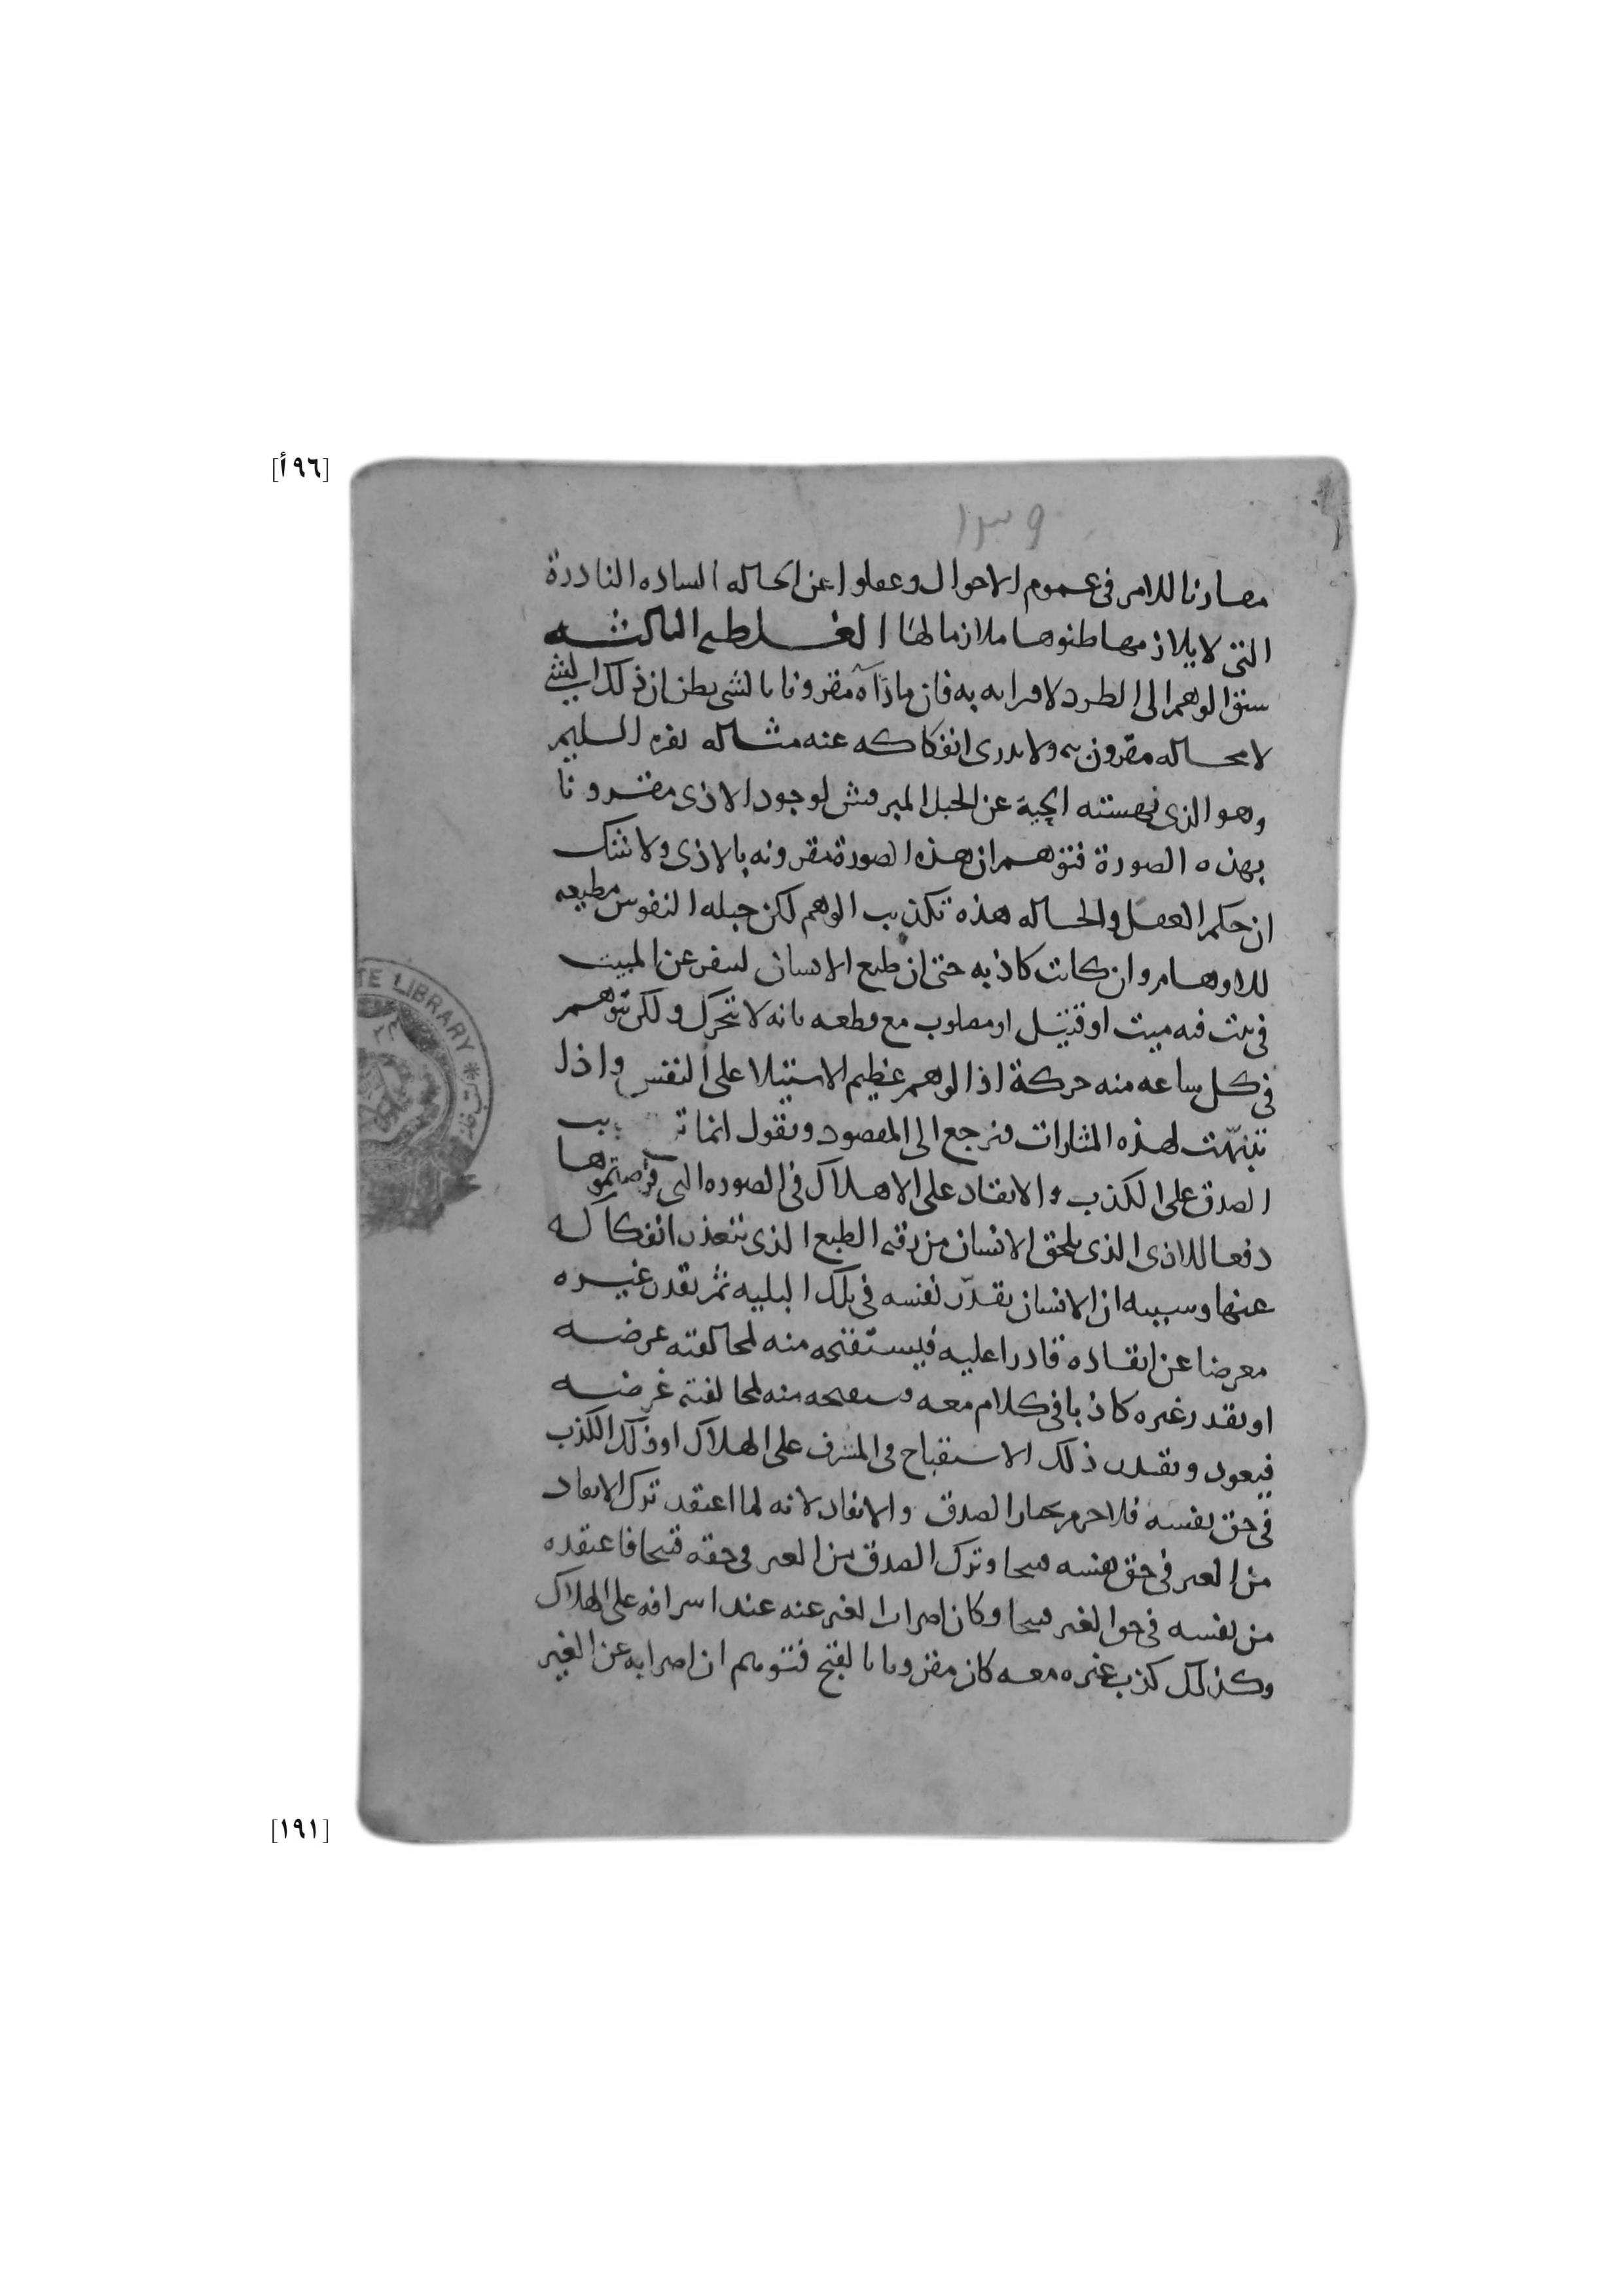 [٩٦أ]
١٣٩
مقارنا للامر فى عموم الاحوال وغفلوا عن الحاله الشاذه النادرة
التى لا يلازمها ظنوها ملازما لها الغلطه الثالثه
سبق الوهم الى الطرد لاقترانه به فان ما رآه مقرونا بالشى يظن ان ذلك الشى
لا محاله مقرون به ولا يدرى انفكاكه عنه مثاله نفره السليم
وهو الذى نهسته الحية عن الحبل المبرقش لوجود الاذى مقرونا
بهذه الصورة فتوهم ان هذه الصورة مقرونه بالاذى ولا نشك
ان حكم العقل والحاله هذه تكذيب الوهم لكن جبله النفوس مطيعه
للاوهام وان كانت كاذبه حتى ان طبع الانسان لينفر عن المبيت
فى بيت فيه ميت او قتيل او مصلوب مع قطعه بانه لا يتحرك ولكن يتوهم
فى كل ساعه منه حركة اذ الوهم عظيم الاستيلا على النفس واذا
تنبهت لهذه المثارات فنرجع الى المقصود ونقول انما
الصدق على الكذب والانقاد على الاهلاك فى الصوره التى فرضتموها
دفعا للاذى الذى يلحق الانسان من رقه الطبع الذى يتعذر انفكاكه
عنها وسببه ان الانسان يقدّر نفسه فى تلك البليه ثم يقدر غيره
معرضا عن انقاذه قادرا عليه فيستقبحه منه لمخالفته غرضه
او يقدر غيره كاذبا فى كلام معه ويستقبحه منه لمخالفته غرضه
فيعود ويقدر ذلك الاستقباح فى المشرف على الهلاك او ذلك الكذب
فى حق نفسه فلا جرم يختار الصدق والانقاد لانه لما اعتقد ترك الانقاد
من الغير فى حق نفسه قبيحا وترك الصدق من الغير فى حقه قبيحا فاعتقده
من نفسه فى حق الغير قبيحا وكان اضراب الغير عنه عند اشرافه على الهلاك
وكذلك كذب غيره معه كان مقرونا بالقبح فتوهم ان اضرابه عن الغير
TE LIBRARY
[١٩١]